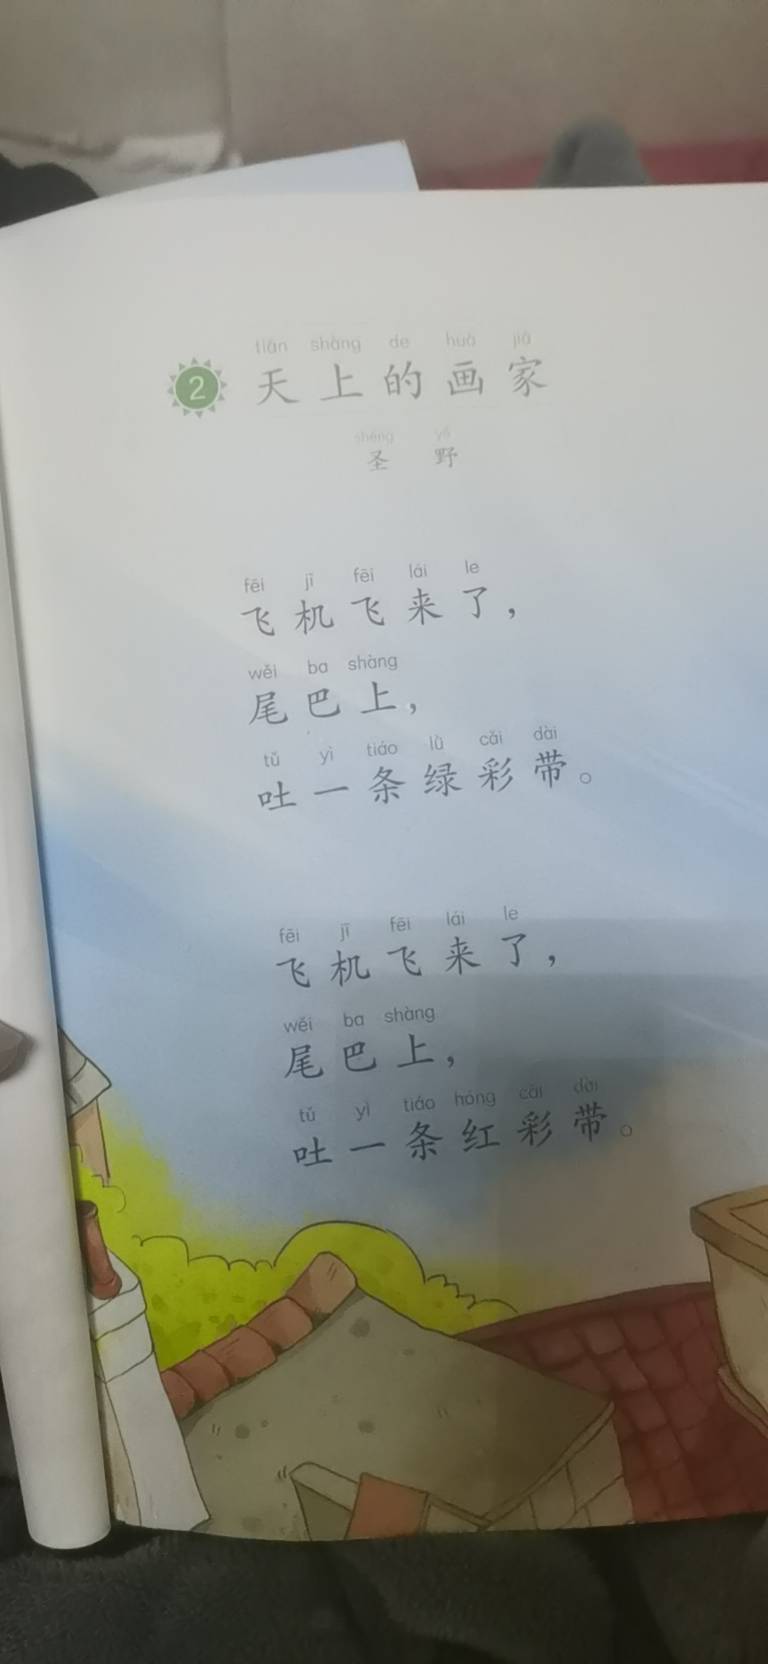 tiān shàng de huà jiā
2 天上的画家
shèng yě
圣 野
fēi jī fēi lái le
飞机飞来了，
wěi ba shàng
尾巴上，
tǔ yì tiáo lǜ cǎi dài
吐一条绿彩带。
fēi jī fēi lái le
飞机飞来了，
wěi ba shàng
尾巴上，
tǔ yì tiáo hóng cǎi dài
吐一条红彩带。